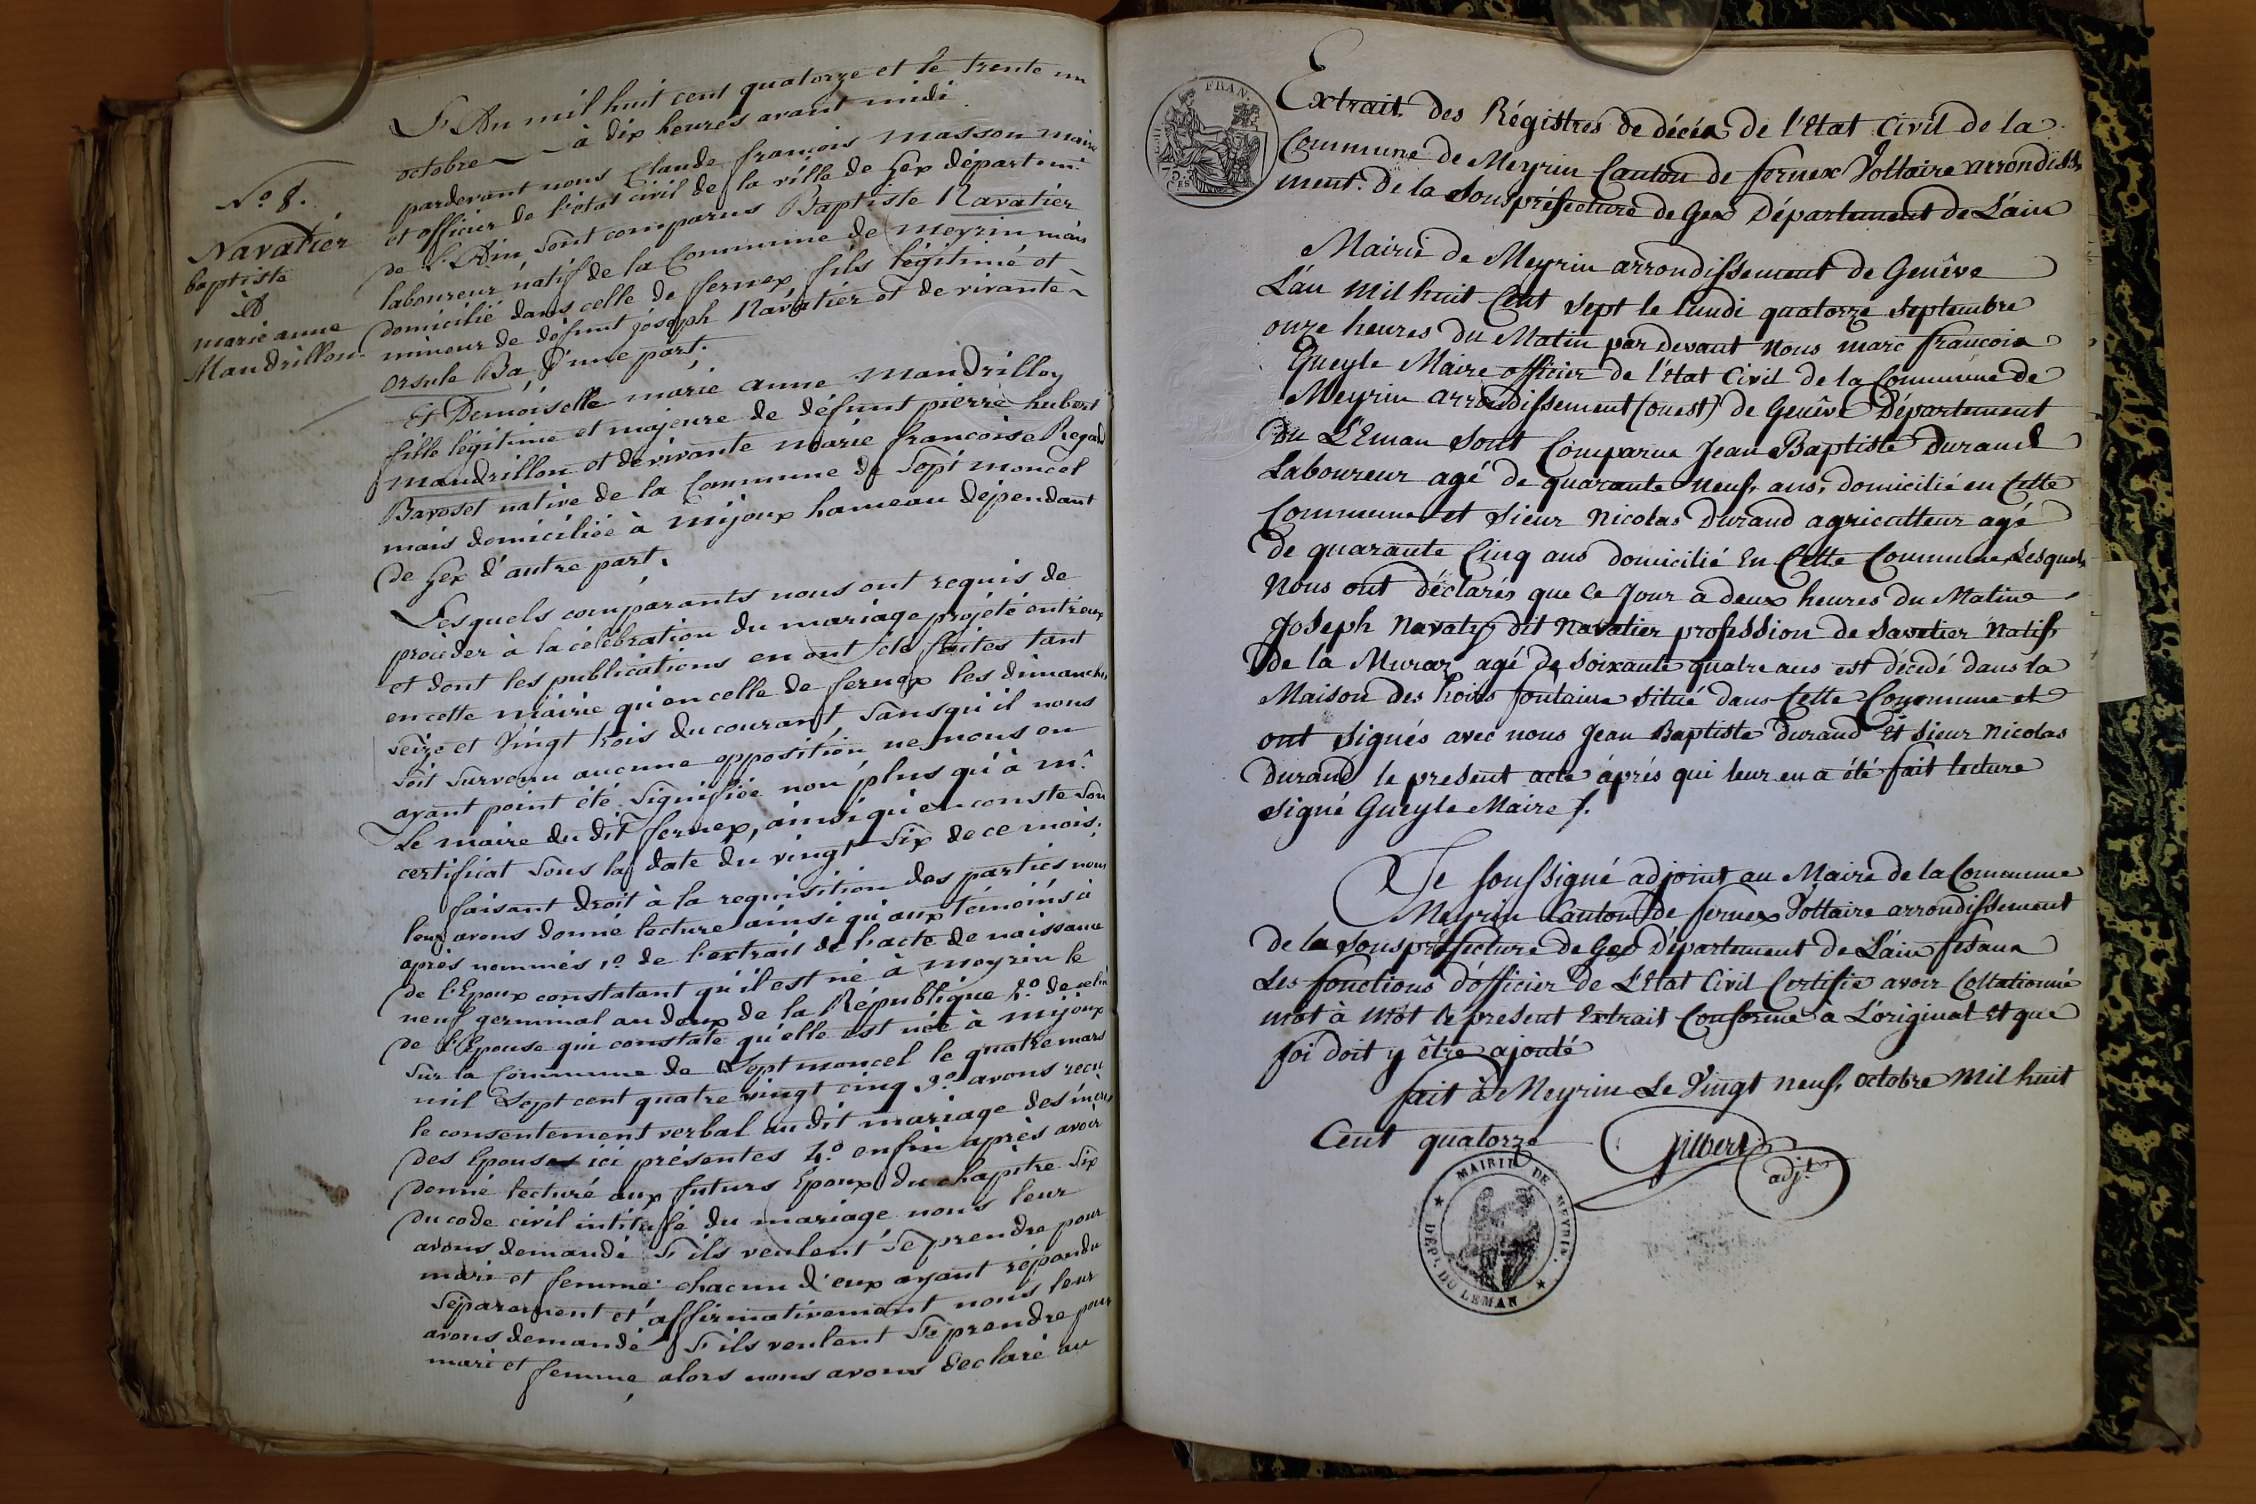 N.º 8.
Navatier
baptiste
&
marie anne
Mandrillon.
L'An mil huit cent quatorze et le trente un
octobre à dix heures avant midi
pardevant nous Claude françois masson maire
et officier de l'état civil de la ville de Gex départem.t
de l'Ain sont comparus Baptiste Navatier
laboureur natif de la Commune de meyrin mais
domicilié dans celle de fernex, fils légitime et
mineur de défunt joseph Navatier et de vivante
orsule Ba d'une part.
Et Demoiselle marie anne mandrillon
fille légitime et majeure de défunt pierre hubert
mandrillon et de vivante marie françoise Regard
Baroset native de la Commune de Septmoncel
mais domiciliée à mijoux hameau dépendant
de Gex d'autre part.
Lesquels comparants nous ont requis de
procéder à la célébration du mariage projété entr'eux
et dont les publications en ont été faites tant
en cette mairie qu'en celle de fernex les dimanches
seize et vingt trois du courant sans qu'il nous
soit survenu aucune opposition ne nous en
ayant point été signifiée non plus qu'à m.r
Le maire du dit fernex, ainsi qu'en conste son
certificat sous la date du vingt six de ce mois.
faisant droit à la requisition des parties nous
leur avons donné lecture ainsi qu'aux témoins ci
après nommés 1.º de l'extrait de l'acte de naissance
de l'Epoux constatant qu'il est né à meyrin le
neuf germinal an deux de la République 2.º de celui
de l'Epouse qui constate qu'elle est née à mijoux
sur la Commune de Septmoncel le quatre mars
mil sept cent quatre vingt cinq 3.º avons reçu
le consentement verbal au dit mariage des mères
des Epouses ici présentes 4.º enfin après avoir
donné lecture aux futurs Epoux du chapitre six
du code civil intitulé du mariage nous leur
avons demandé s'ils veulent se prendre pour
mari et femme: chacun d'eux ayant répondu
séparement et affirmativement nous leur
avons demandé s'ils veulent se prendre pour
mari et femme, alors nous avons declaré au
FRAN.
75.
CES
Extrait des Régistres de décés de l'Etat Civil de la
Commune de Meyrin Canton de fernex Voltaire arrondiss
ment. de la Sous préfecture de Gex Département de L'ain
Mairie de Meyrin arrondissement de Genêve
L'an mil huit Cent sept le lundi quatorze septembre
onze heures du Matin par Devant Nous marc françois
Gueyle Maire officier de l'etat Civil de la Commune de
Meyrin arrondissement (ouest) de Genêve Département
Du LEman sont Comparus Jean Baptiste Durand
Laboureur agé de quarante neuf, ans, domicilié en Cette
Commune et sieur Nicolas Durand agriculteur agé
de quarante Cinq ans domicilié En Cette Commune Lesquels
Nous ont déclarés que Ce Jour à deux heures du Matin
Joseph Navaty dit Navatier profession de Savetier Natif
de la Muraz agé de Soixante quatre ans est décedé dans la
Maison des hoirs fontaine situé dans Cette Commune et
ont signés avec nous Jean Baptiste Durand Et Sieur Nicolas
Durand le present acte aprés qui leur en a été fait lecture
signé Gueyle Maire /.
Je soussigné adjoint au Maire de la Commune
Meyrin Canton de fernex Voltaire arrondissement
de la Sous préfecture de Gex Département de L'ain fesant
Les fonctions d'officier de L'Etat Civil Certifie avoir Collationné
mot à mot le present Extrait Conforme à L'original et que
foi doit y être ajouté
fait à Meyrin Le Vingt neuf, octobre Mil huit
Cent quatorze Gilbert
adj.t
MAIRIE DE MEYRIN.
DÉP.T DU LEMAN